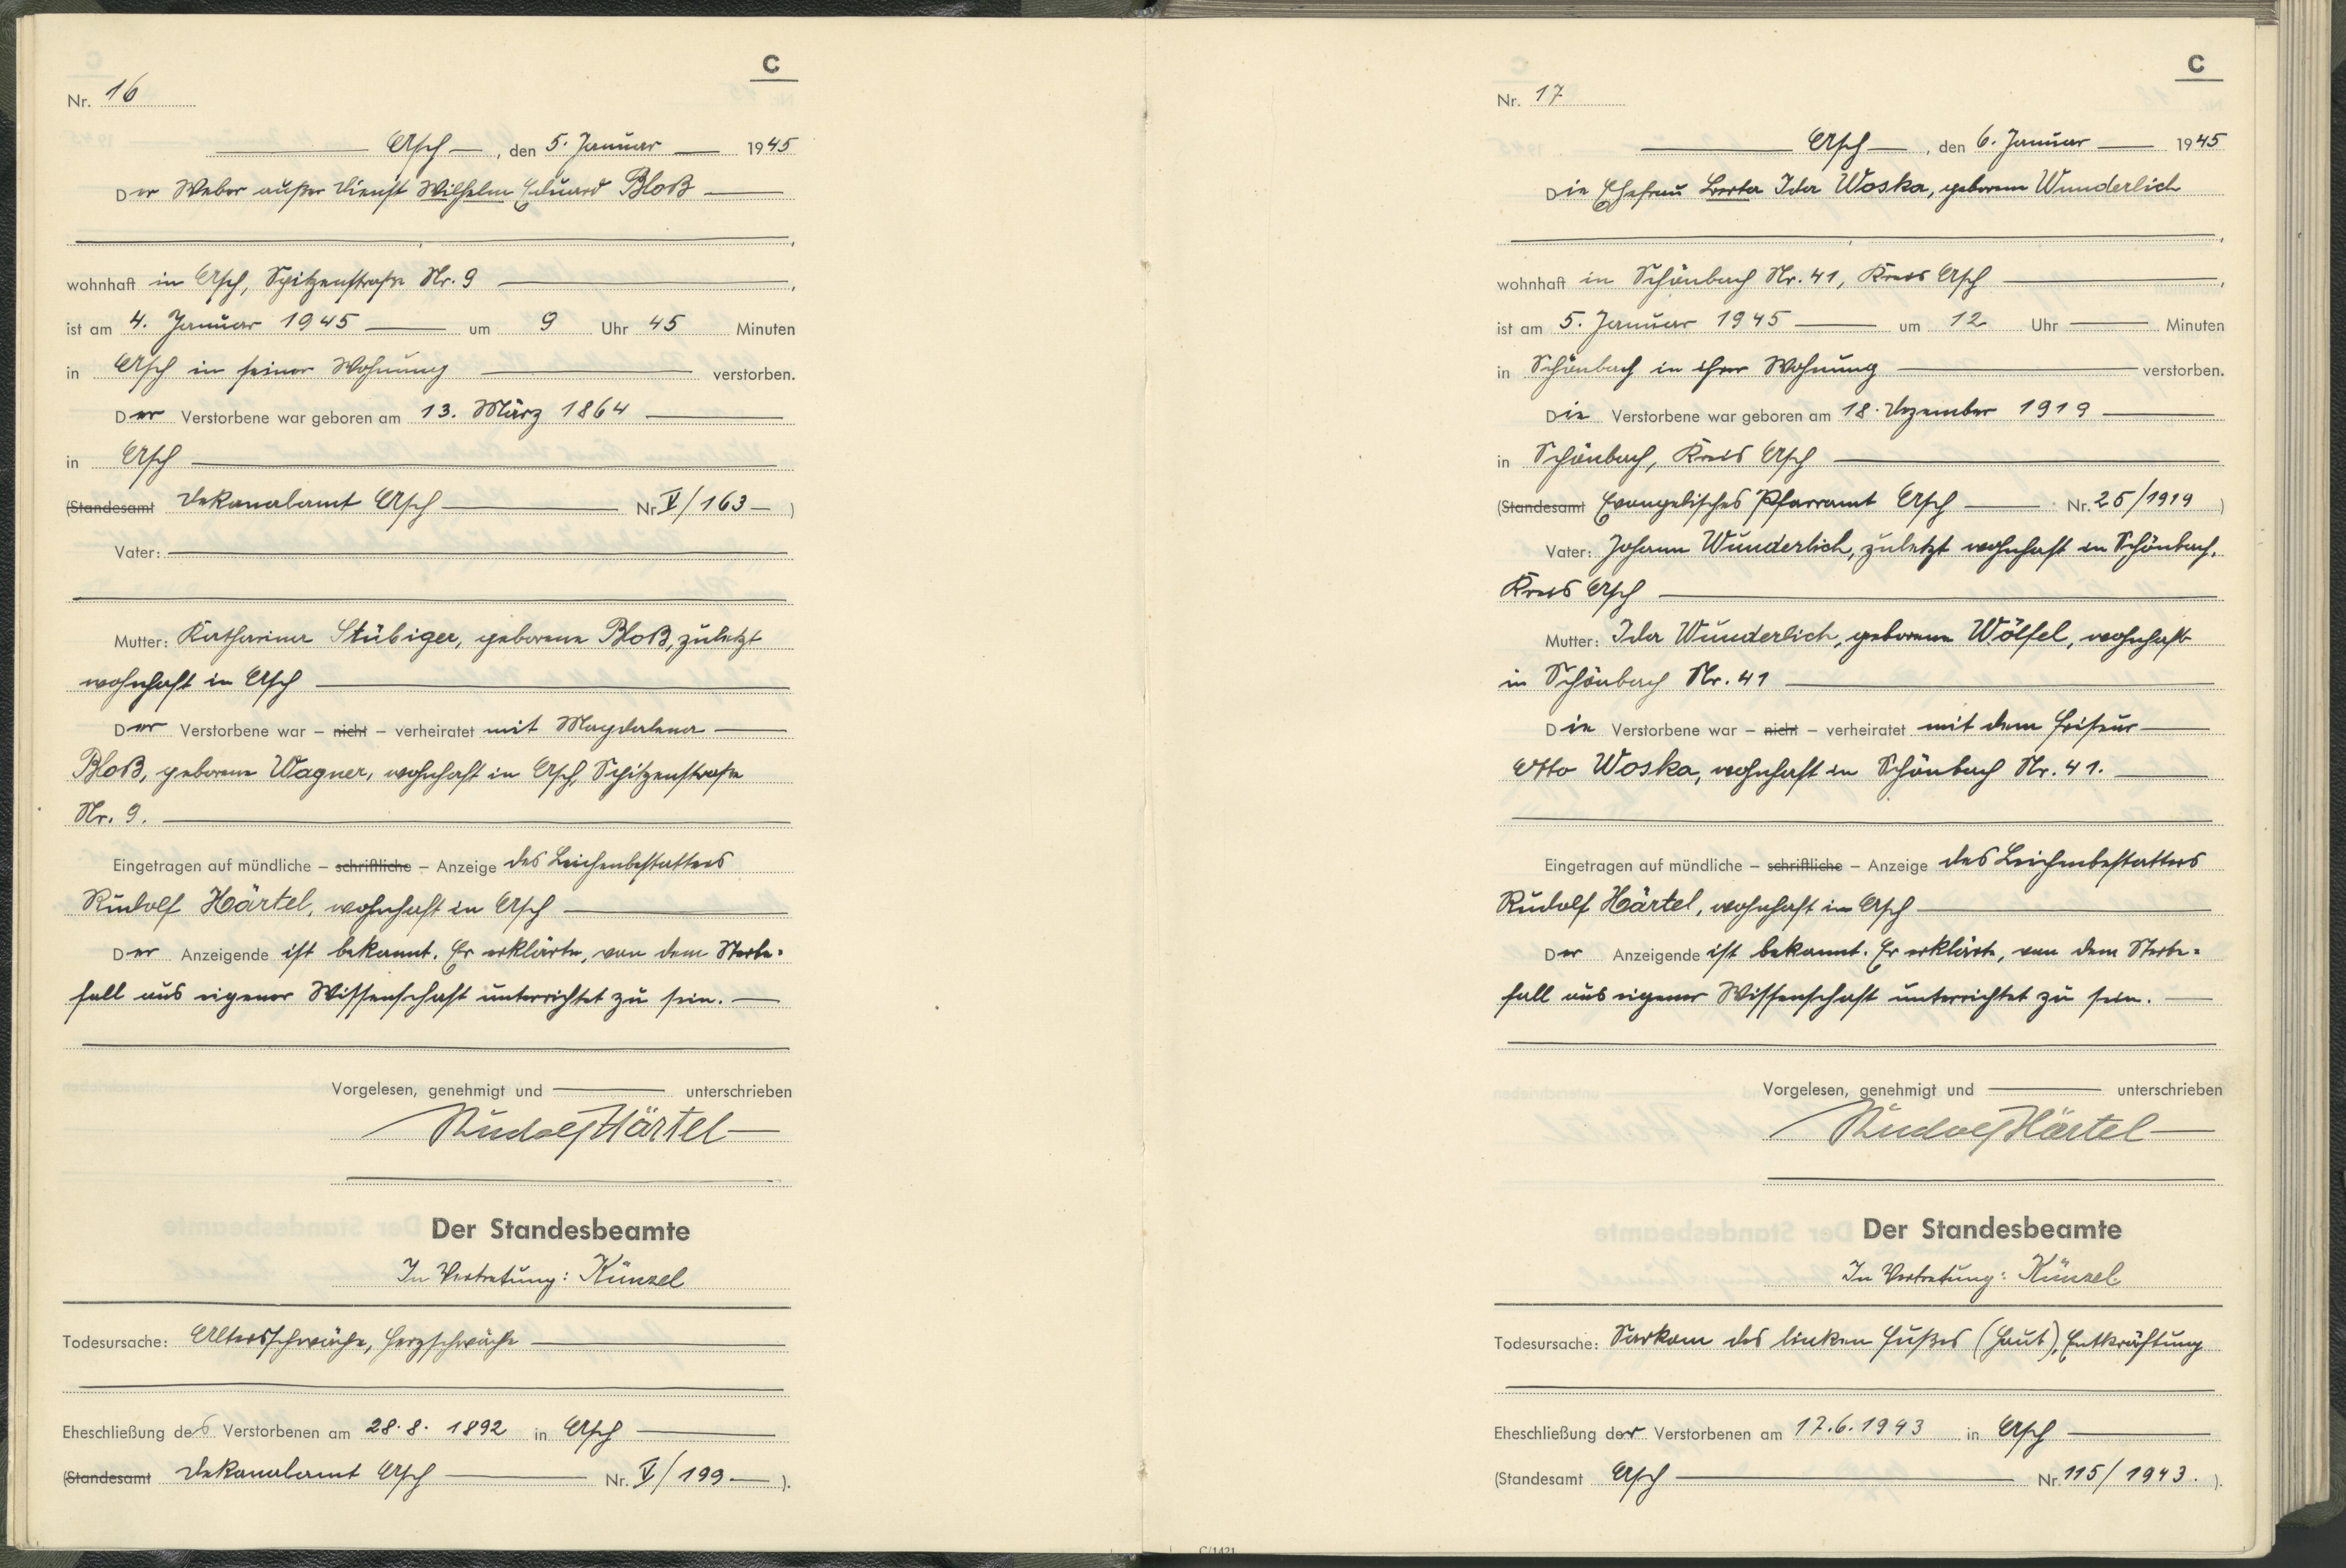 C
Nr. 16
Asch, den 5. Januar 1945
Der Weber außer Dienst Wilhelm Eduard Bloß
wohnhaft in Asch, Spitzenstraße Nr. 9,
ist am 4. Januar 1945 um 9 Uhr 45 Minuten
in Asch in seiner Wohnung verstorben.
Der Verstorbene war geboren am 13. März 1864
in Asch
(Standesamt Dekanalamt Asch Nr. V/163)
Vater:
Mutter: Katharina Stübiger, geborene Bloß, zuletzt
wohnhaft in Asch
Der Verstorbene war – nicht – verheiratet mit Magdalena
Bloß, geborene Wagner, wohnhaft in Asch, Spitzenstraße
Nr. 9.
Eingetragen auf mündliche – schriftliche – Anzeige des Leichenbestatters
Rudolf Härtel, wohnhaft in Asch
Der Anzeigende ist bekannt. Er erklärte, von dem Sterbe=
fall aus eigener Wissenschaft unterrichtet zu sein.
Vorgelesen, genehmigt und unterschrieben
Rudolf Härtel
Der Standesbeamte
In Vertretung: Künzel
Todesursache: Altersschwäche, Herzschwäche
Eheschließung des Verstorbenen am 28.8.1892 in Asch
(Standesamt Dekanalamt Asch Nr. V/199).
C
Nr. 17
Asch, den 6. Januar 1945
Die Ehefrau Berta Ida Woska, geborene Wunderlich
wohnhaft in Schönbach Nr. 41, Kreis Asch,
ist am 5. Januar 1945 um 12 Uhr Minuten
in Schönbach in ihrer Wohnung verstorben.
Die Verstorbene war geboren am 18. Dezember 1919
in Schönbach, Kreis Asch
(Standesamt Evangelisches Pfarramt Asch Nr. 25/1919)
Vater: Johann Wunderlich, zuletzt wohnhaft in Schönbach,
Kreis Asch
Mutter: Ida Wunderlich, geborene Wölfel, wohnhaft
in Schönbach Nr. 41
Die Verstorbene war – nicht – verheiratet mit dem Friseur
Otto Woska, wohnhaft in Schönbach Nr. 41.
Eingetragen auf mündliche – schriftliche – Anzeige des Leichenbestatters
Rudolf Härtel, wohnhaft in Asch
Der Anzeigende ist bekannt. Er erklärte, von dem Sterbe=
fall aus eigener Wissenschaft unterrichtet zu sein.
Vorgelesen, genehmigt und unterschrieben
Rudolf Härtel
Der Standesbeamte
In Vertretung: Künzel
Todesursache: Sarkom des linken Fußes (Haut), Entkräftung
Eheschließung der Verstorbenen am 17.6.1943 in Asch
(Standesamt Asch Nr. 115/1943.).